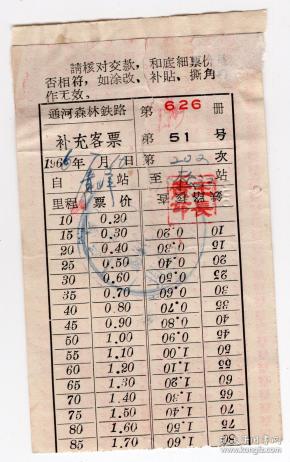 請核对交款，和底細票
否相符，如涂改、补貼、撕角
作无效。
通河森林鉄路 第 626 册
补充客票 第 51 号
196 年 月 日 第 202 次
自 站 至 站
里程 票价
10 0.20
15 0.30
20 0.40
25 0.50
30 0.60
35 0.70
40 0.80
45 0.90
50 1.00
55 1.10
60 1.20
65 1.30
70 1.40
75 1.50
80 1.60
85 1.70
10 0.20
15 0.30
20 0.40
25 0.50
30 0.60
35 0.70
40 0.80
45 0.90
50 1.00
55 1.10
60 1.20
65 1.30
70 1.40
75 1.50
80 1.60